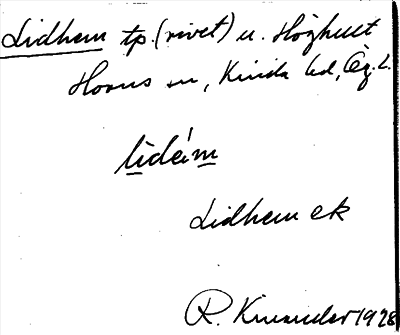 Lidhem tp. (rivet) u. Höghult
Horns sn, Kinda hd, Ög. L.
lìdeám
Lidhem ek
R. Kinander 1928